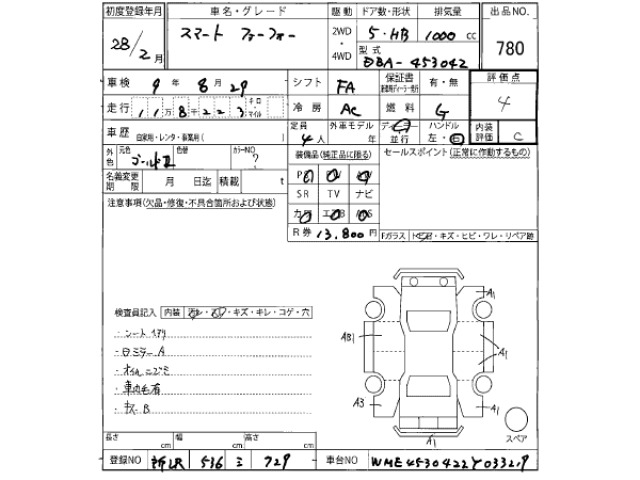 初度登録年月 車名・グレード 駆動 ドア数・形状 排気量 出品NO.
28/2月 スマート フォーフォー 2WD・4WD 5・HB 1000cc 780
型式 DBA-453042
車検 9年 8月 29 シフト FA 保証書 有・無 評価点
4
走行 11万8千223 キロ マイル 冷房 AC 燃料 G
車歴 自家用・レンタ・事業用( ) 定員 4人 外車モデル 年 ディーラー 並行 ハンドル 左・右 内装評価 C
外色 元色 ゴールド 色替 カラーNO ? 装備品(純正品に限る) セールスポイント(正常に作動するもの)
名義変更期限 月 日迄 積載 t
SR TV ナビ
注意事項(欠品・修復・不具合箇所および状態)
R券 13,800円 Fガラス キズ・ヒビ・ワレ・リペア跡
検査員記入 内装 キズ・キレ・コゲ・穴
・シート
・ロミラーA
・オイルニジミ
・車内毛有
・キズB
A1
AB1
A1
A3
A1
A1
スペア
長さ cm 幅 cm 高さ cm
登録NO 536 ミ 729 車台NO WME4530422Y033219